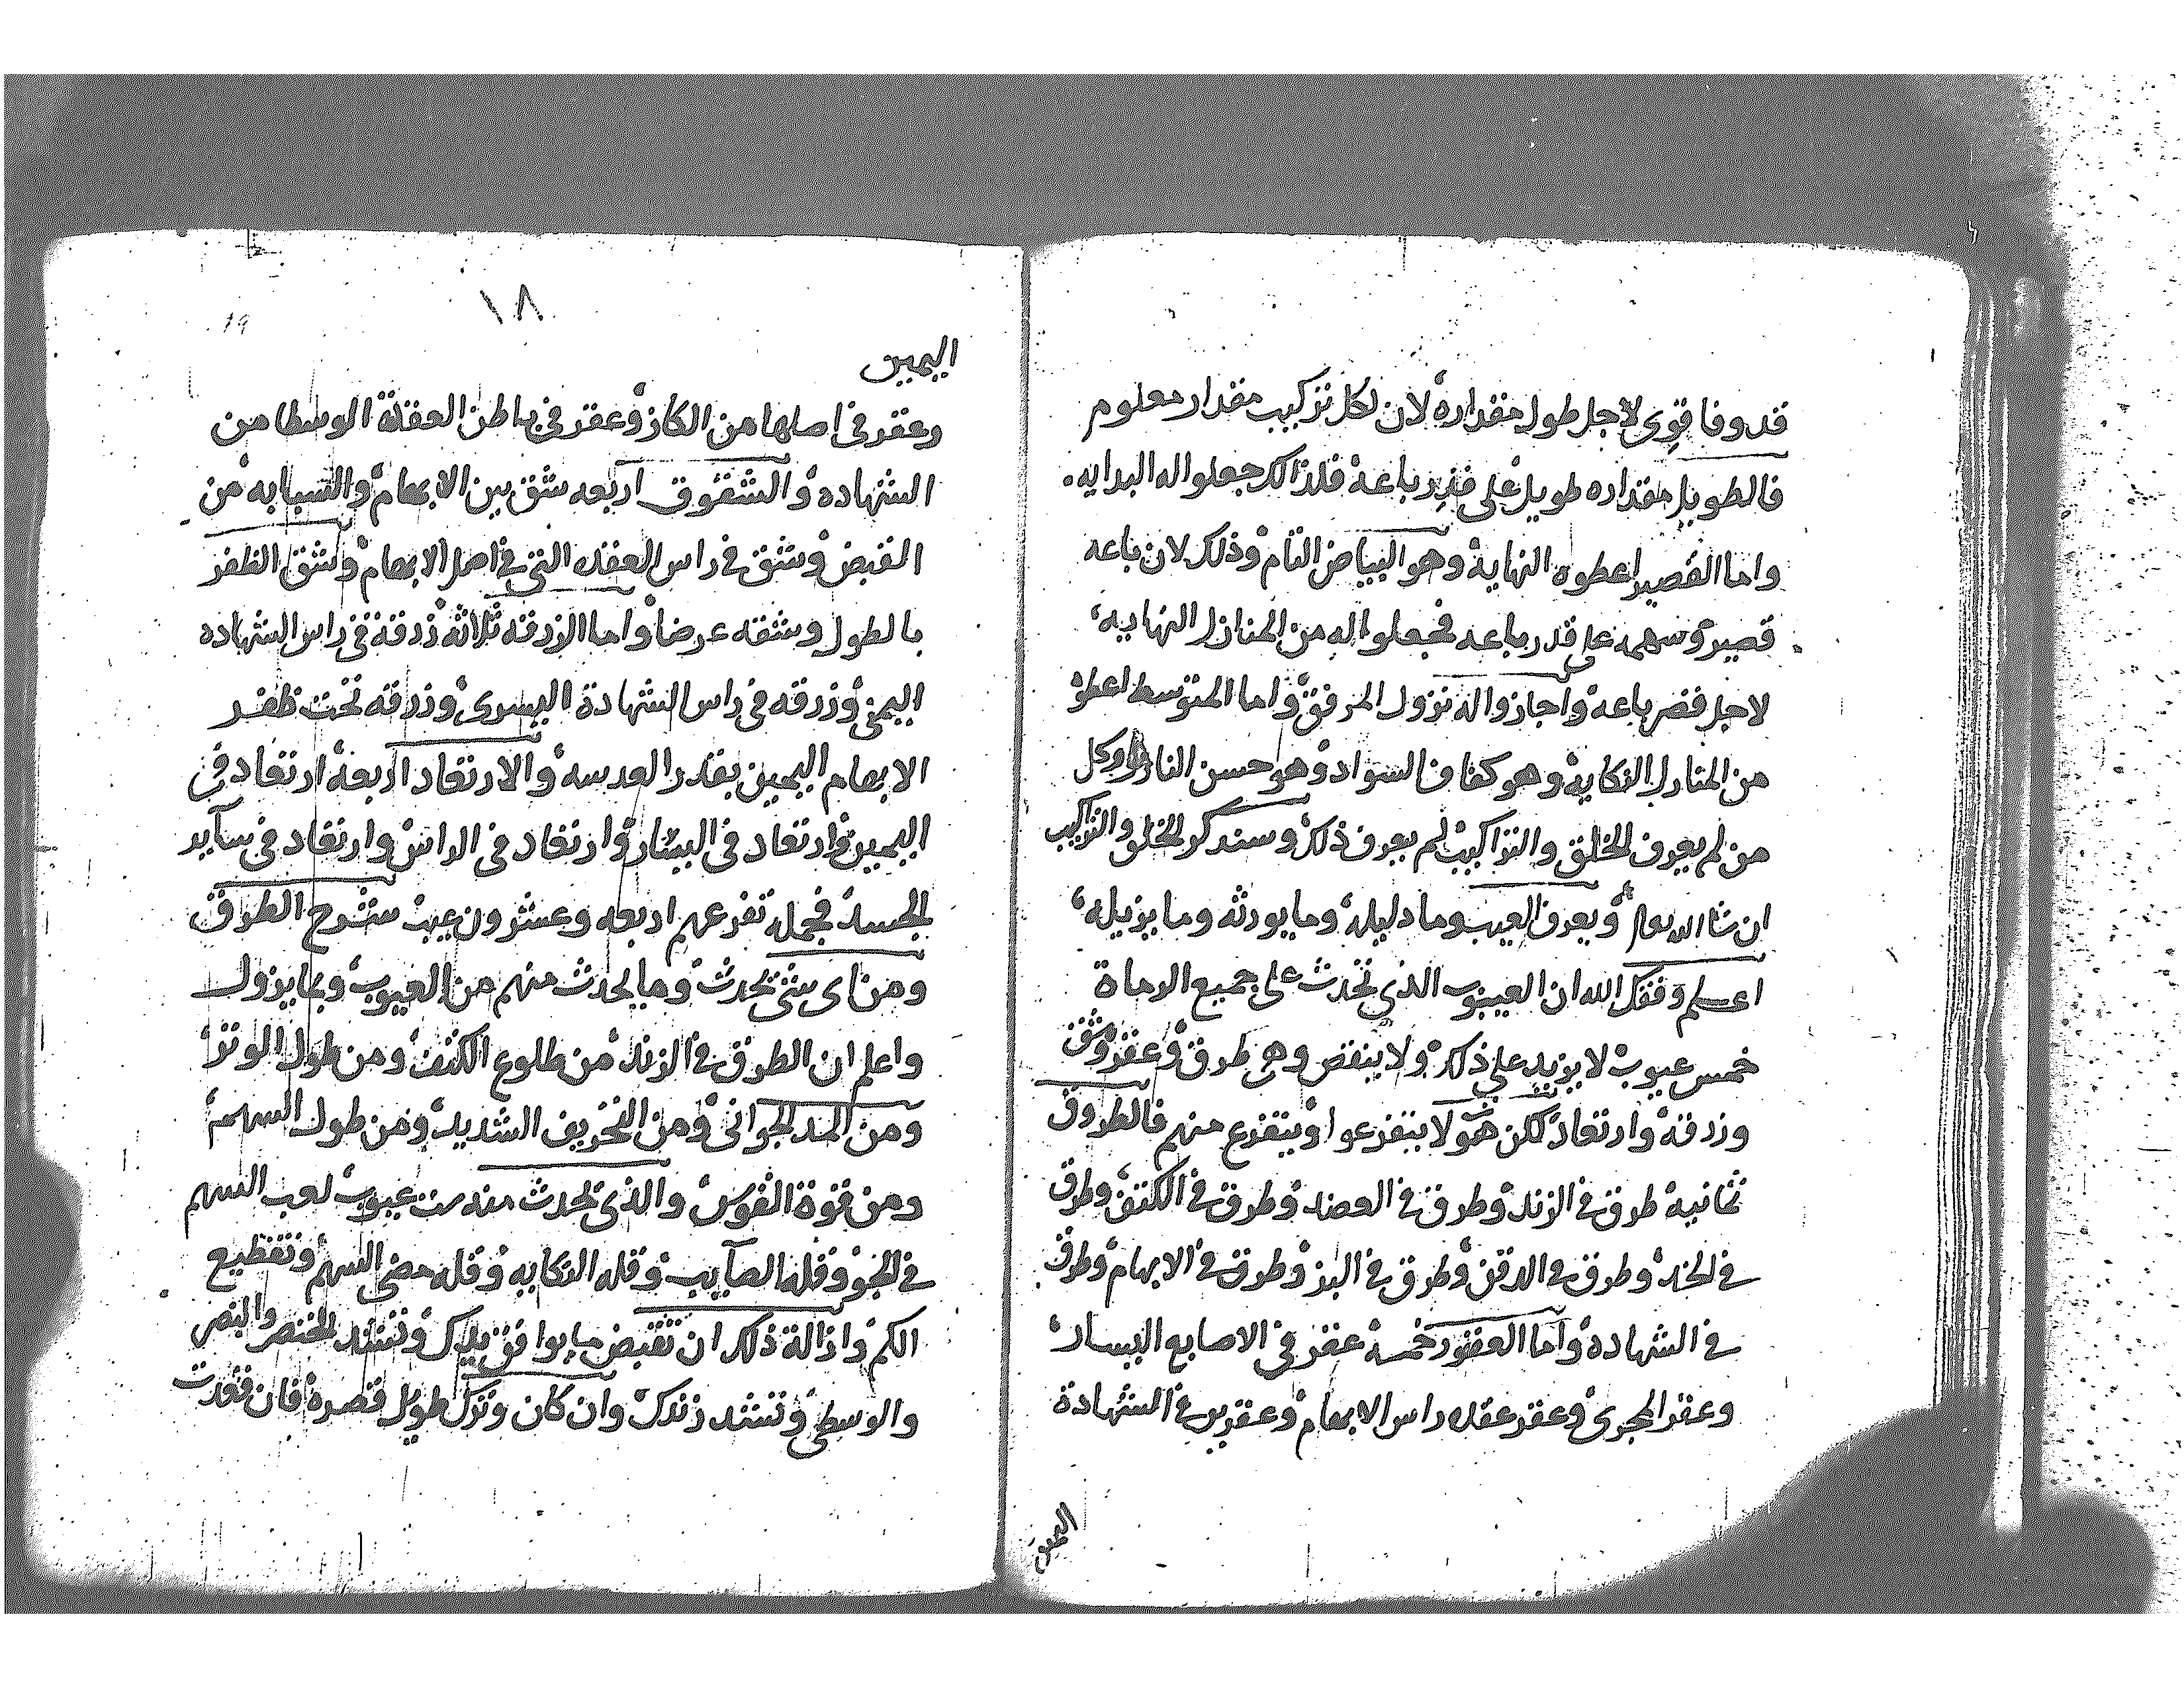 قد وفا قوى لاجل طول مقداره لان لكل تركيب مقدار معلوم
فالطويل مقداره طويل على قدر باعه فلذالك جعلوا له البدايه
واما القصير اعطوه النهاية وهو البياض التام وذلك لان باعه
قصير وسهمه على قدر باعه فجعلوا له من المنازل النهايه
لاجل قصر باعه واجازوا له نزول المرفق واما المتوسط اعطوه
من المنازل النكاية وهو كفا فا السواد وهو حسن وكل
من لم يعرف الخلق والتراكيب لم يعرف ذلك وسندكر الخلق والتراكيب
ان شا الله تعالى ويعرف العيب وما دليله وما يورثه وما يزيله
اعلم وفقك الله ان العيوب الذي تحدث على جميع الرماة
خمس عيوب لا يزيد على ذلك ولا ينقض وهي طرق وعقر وشق
وزرقة وارتعاد لكن هولا يتفرعوا ويتفرع منهم فالطروق
ثمانية طرق في الزند وطرق في العضد وطرق في الكتف وطرق
في الخد وطرق في الدقن وطرق في البز وطرق في الابهام وطرق
في الشهادة واما العقور خمسة عقر في الاصابع اليسار
وعقر المجرى وعقر عقله راس الابهام وعقرين في الشهادة
اليمين
١٨
19
اليمين
وعقر في اصلها من الكاز وعقر في باطن العقلة الوسطا من
الشهاده والشقوق اربعه شق بين الابهام والسبابه من
القبض وشق في راس العقله التي في اصل الابهام وشق الظفر
بالطول وشقه عرضا واما الزرقه ثلاثة زرقة في راس الشهاده
اليمنى وزرقه في راس الشهادة اليسرى وزرقه تحت ظفر
الابهام اليمين بقدر العدسه والارتعاد اربعة ارتعاد في
اليمين وارتعاد في اليسار وارتعاد في الراس وارتعاد في سآير
الجسد فجملة تفرعهم اربعه وعشرون عيب سنشرح الطرق
ومن اى شى يحدث وما يحدث منهم من العيوب وبما يزول
واعلم ان الطرق في الزند من طلوع الكتف ومن طول الوتر
ومن المد الجوانى ومن التحريف الشديد ومن طول السهم
ومن قوة القوس والذى يحدث منه ست عيوب لعب السهم
في الجو وقله الصآيب وقله النكايه وقله مضى السهم وتقطيع
الكم وازالة ذلك ان تقبض ما يوافق يدك وتشد الخنصر والبنصر
والوسطى وتشد زندك وان كان وترك طويل قصره فان فقدت